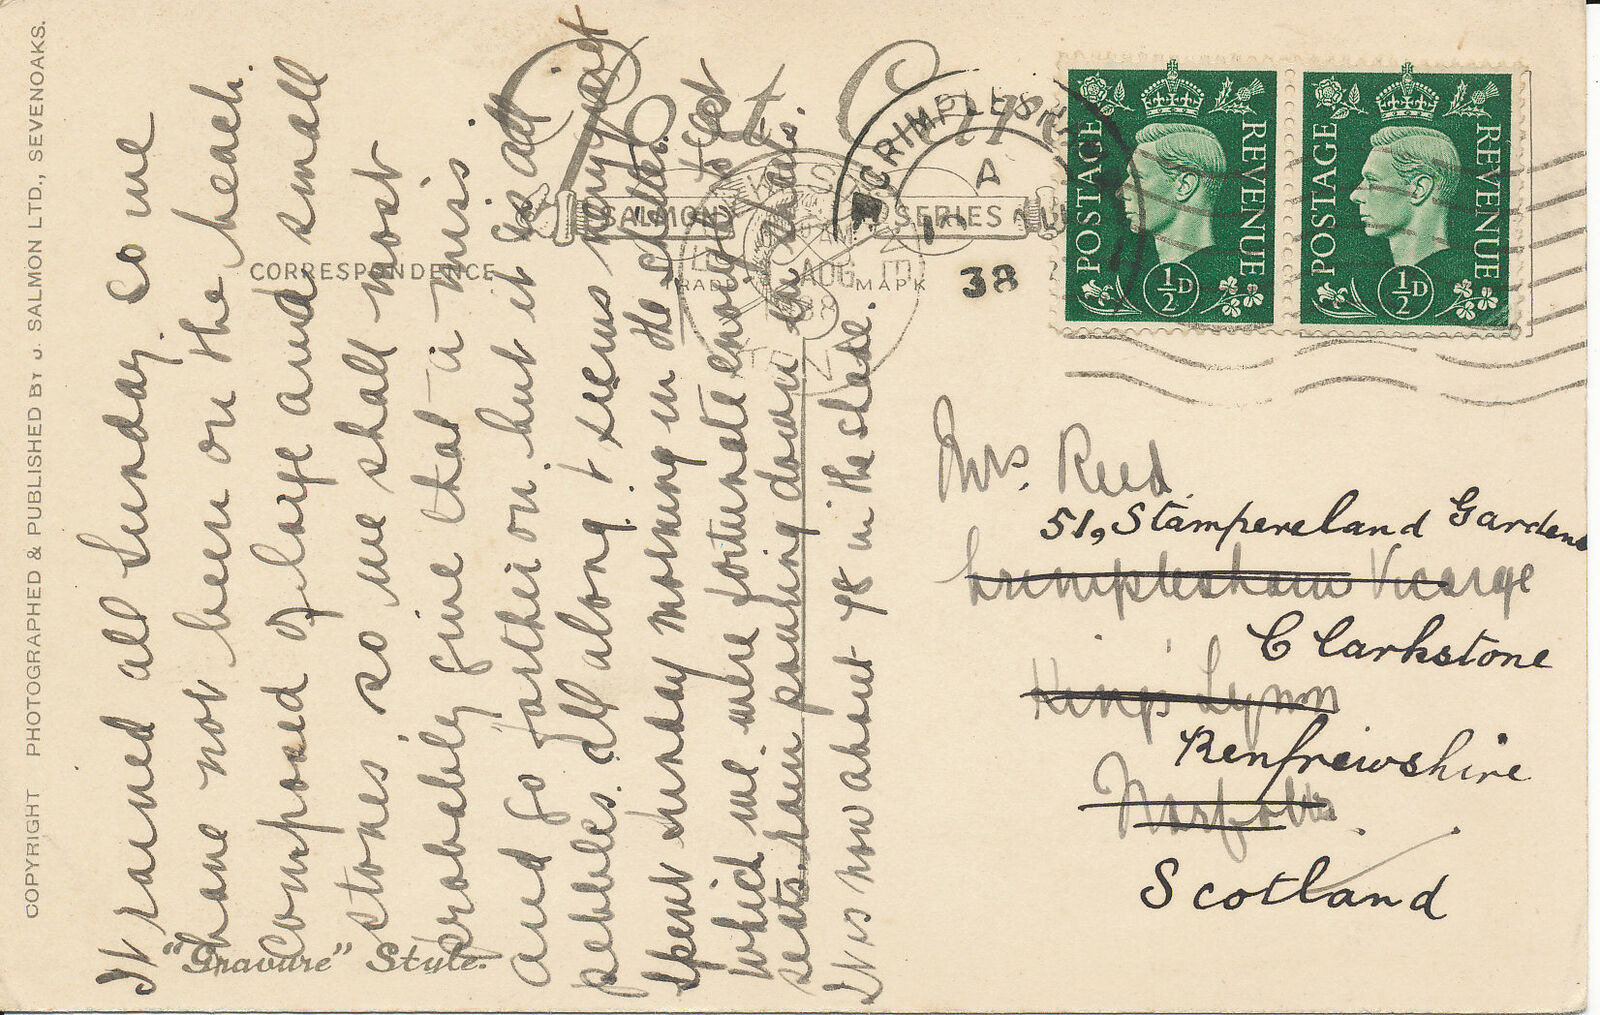 COPYRIGHT PHOTOGRAPHED & PUBLISHED BY J. SALMON LTD., SEVENOAKS.
Post Card
SALMON SERIES
TRADE MARK
CORRESPONDENCE
"Gravure" Style.
It rained all Sunday. So we
have not been on the beach.
composed of large and small
stones, so we shall most
probably give that a miss
and go farther on. but it is all
pebbles. all along. + seems very
spent Sunday morning in the shelter.
which we were fortunate enough to get
seats. rain pouring down in sheets.
It is now about 78 in the shade.
CRIMPLESHAM
A
38
10 AUG
38
POSTAGE REVENUE
½D
POSTAGE REVENUE
½D
Mrs. Reed
51, Stampereland Gardens
Crimplesham Vicarage
Clarkstone
King's Lynn
Renfrewshire
Norfolk.
Scotland